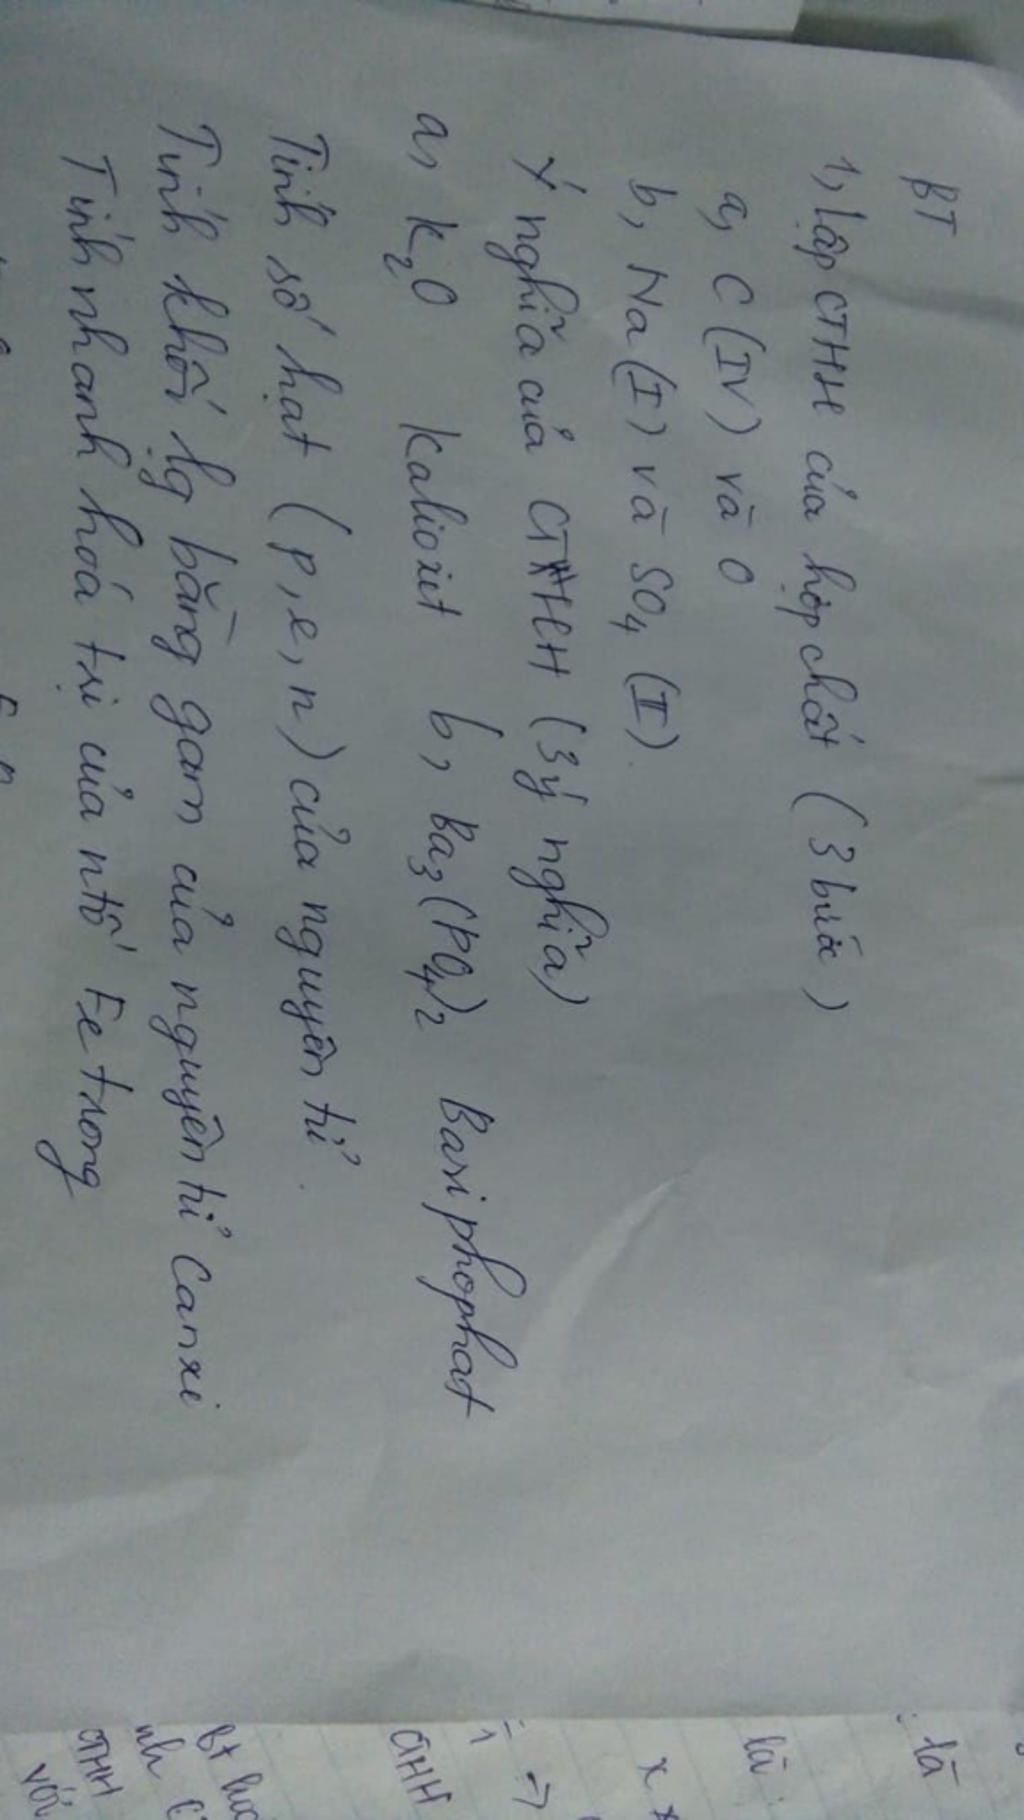 BT
1, Lập CTHH của hợp chất (3 bước)
a, C (IV) và O
b, Na (I) và SO4 (II).
Ý nghĩa của CTHH (3 ý nghĩa)
a, K2O Kalioxit b, Ba3(PO4)2 Bari phophat
Tính số hạt (p, e, n) của nguyên tử.
Tính khối lg bằng gam của nguyên tử Canxi
Tính nhanh hoá trị của ntố Fe trong
là
là
x
⇒
CTHH
CTHH
với